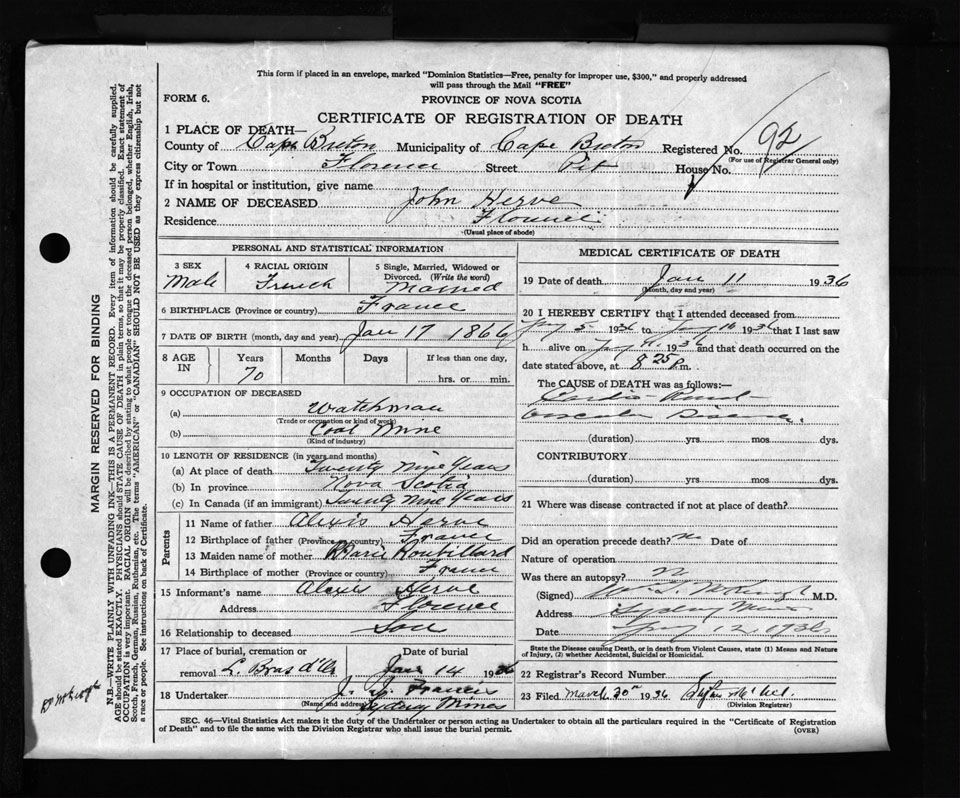 This form if placed in an envelope, marked "Dominion Statistics—Free, penalty for improper use, $300," and properly addressed
will pass through the Mail "FREE"
FORM 6.
PROVINCE OF NOVA SCOTIA
CERTIFICATE OF REGISTRATION OF DEATH
1 PLACE OF DEATH—
County of Cape Breton Municipality of Cape Breton Registered No. 92
(For use of Registrar General only)
City or Town Florence Street Pit House No.
If in hospital or institution, give name
2 NAME OF DECEASED John Herve
Residence Florence
(Usual place of abode)
PERSONAL AND STATISTICAL INFORMATION
3 SEX Male
4 RACIAL ORIGIN French
5 Single, Married, Widowed or
Divorced. (Write the word)
Married
6 BIRTHPLACE (Province or country) France
7 DATE OF BIRTH (month, day and year) Jan 17 1866
8 AGE IN
Years 70
Months
Days
If less than one day,
hrs. or min.
9 OCCUPATION OF DECEASED
(a) Watchman
(Trade or occupation or kind of work)
(b) Coal Mine
(Kind of industry)
10 LENGTH OF RESIDENCE (in years and months)
(a) At place of death Twenty Nine Years
(b) In province Nova Scotia
(c) In Canada (if an immigrant) Twenty Nine Years
Parents
11 Name of father Alexis Herve
12 Birthplace of father (Province or country) France
13 Maiden name of mother Marie Roubillard
14 Birthplace of mother (Province or country) France
15 Informant's name Alexis Herve
Address Florence
16 Relationship to deceased Son
17 Place of burial, cremation or Date of burial
removal L. Bras d'Or Jan 14 1936
18 Undertaker J. Francis
(Name and address) Sydney Mines
MEDICAL CERTIFICATE OF DEATH
19 Date of death Jan 11 1936
(Month, day and year)
20 I HEREBY CERTIFY that I attended deceased from
Jany 5 1936 to Jany 1936 that I last saw
h alive on Jany 1936 and that death occurred on the
date stated above, at 8 25 P.m.
The CAUSE OF DEATH was as follows:—
Disease.
(duration) yrs mos dys.
CONTRIBUTORY
(duration) yrs mos dys.
21 Where was disease contracted if not at place of death?
Did an operation precede death? no Date of
Nature of operation
Was there an autopsy? N
(Signed) M.D.
Address Sydney Mines
Date Jany 12 1936
State the Disease causing Death, or in death from Violent Causes, state (1) Means and
Nature of Injury, (2) whether Accidental, Suicidal or Homicidal.
22 Registrar's Record Number
23 Filed March 30" 1936
(Division Registrar)
SEC. 46—Vital Statistics Act makes it the duty of the Undertaker or person acting as Undertaker to obtain all the particulars required in the "Certificate of Registration
of Death" and to file the same with the Division Registrar who shall issue the burial permit.
(OVER)
MARGIN RESERVED FOR BINDING
N.B.—WRITE PLAINLY WITH UNFADING INK—THIS IS A PERMANENT RECORD. Every item of information should be carefully supplied.
AGE should be stated EXACTLY. PHYSICIANS should STATE CAUSE OF DEATH in plain terms, so that it may be properly classified. Exact statement of
OCCUPATION is very important. RACIAL ORIGIN will be described by stating to what people or tongue the deceased person belonged, whether English, Irish,
Scotch, French, German, Russian, Ruthenian, etc. The terms "AMERICAN" or "CANADIAN" SHOULD NOT BE USED as they express citizenship but not
a race or people. See instructions on back of Certificate.